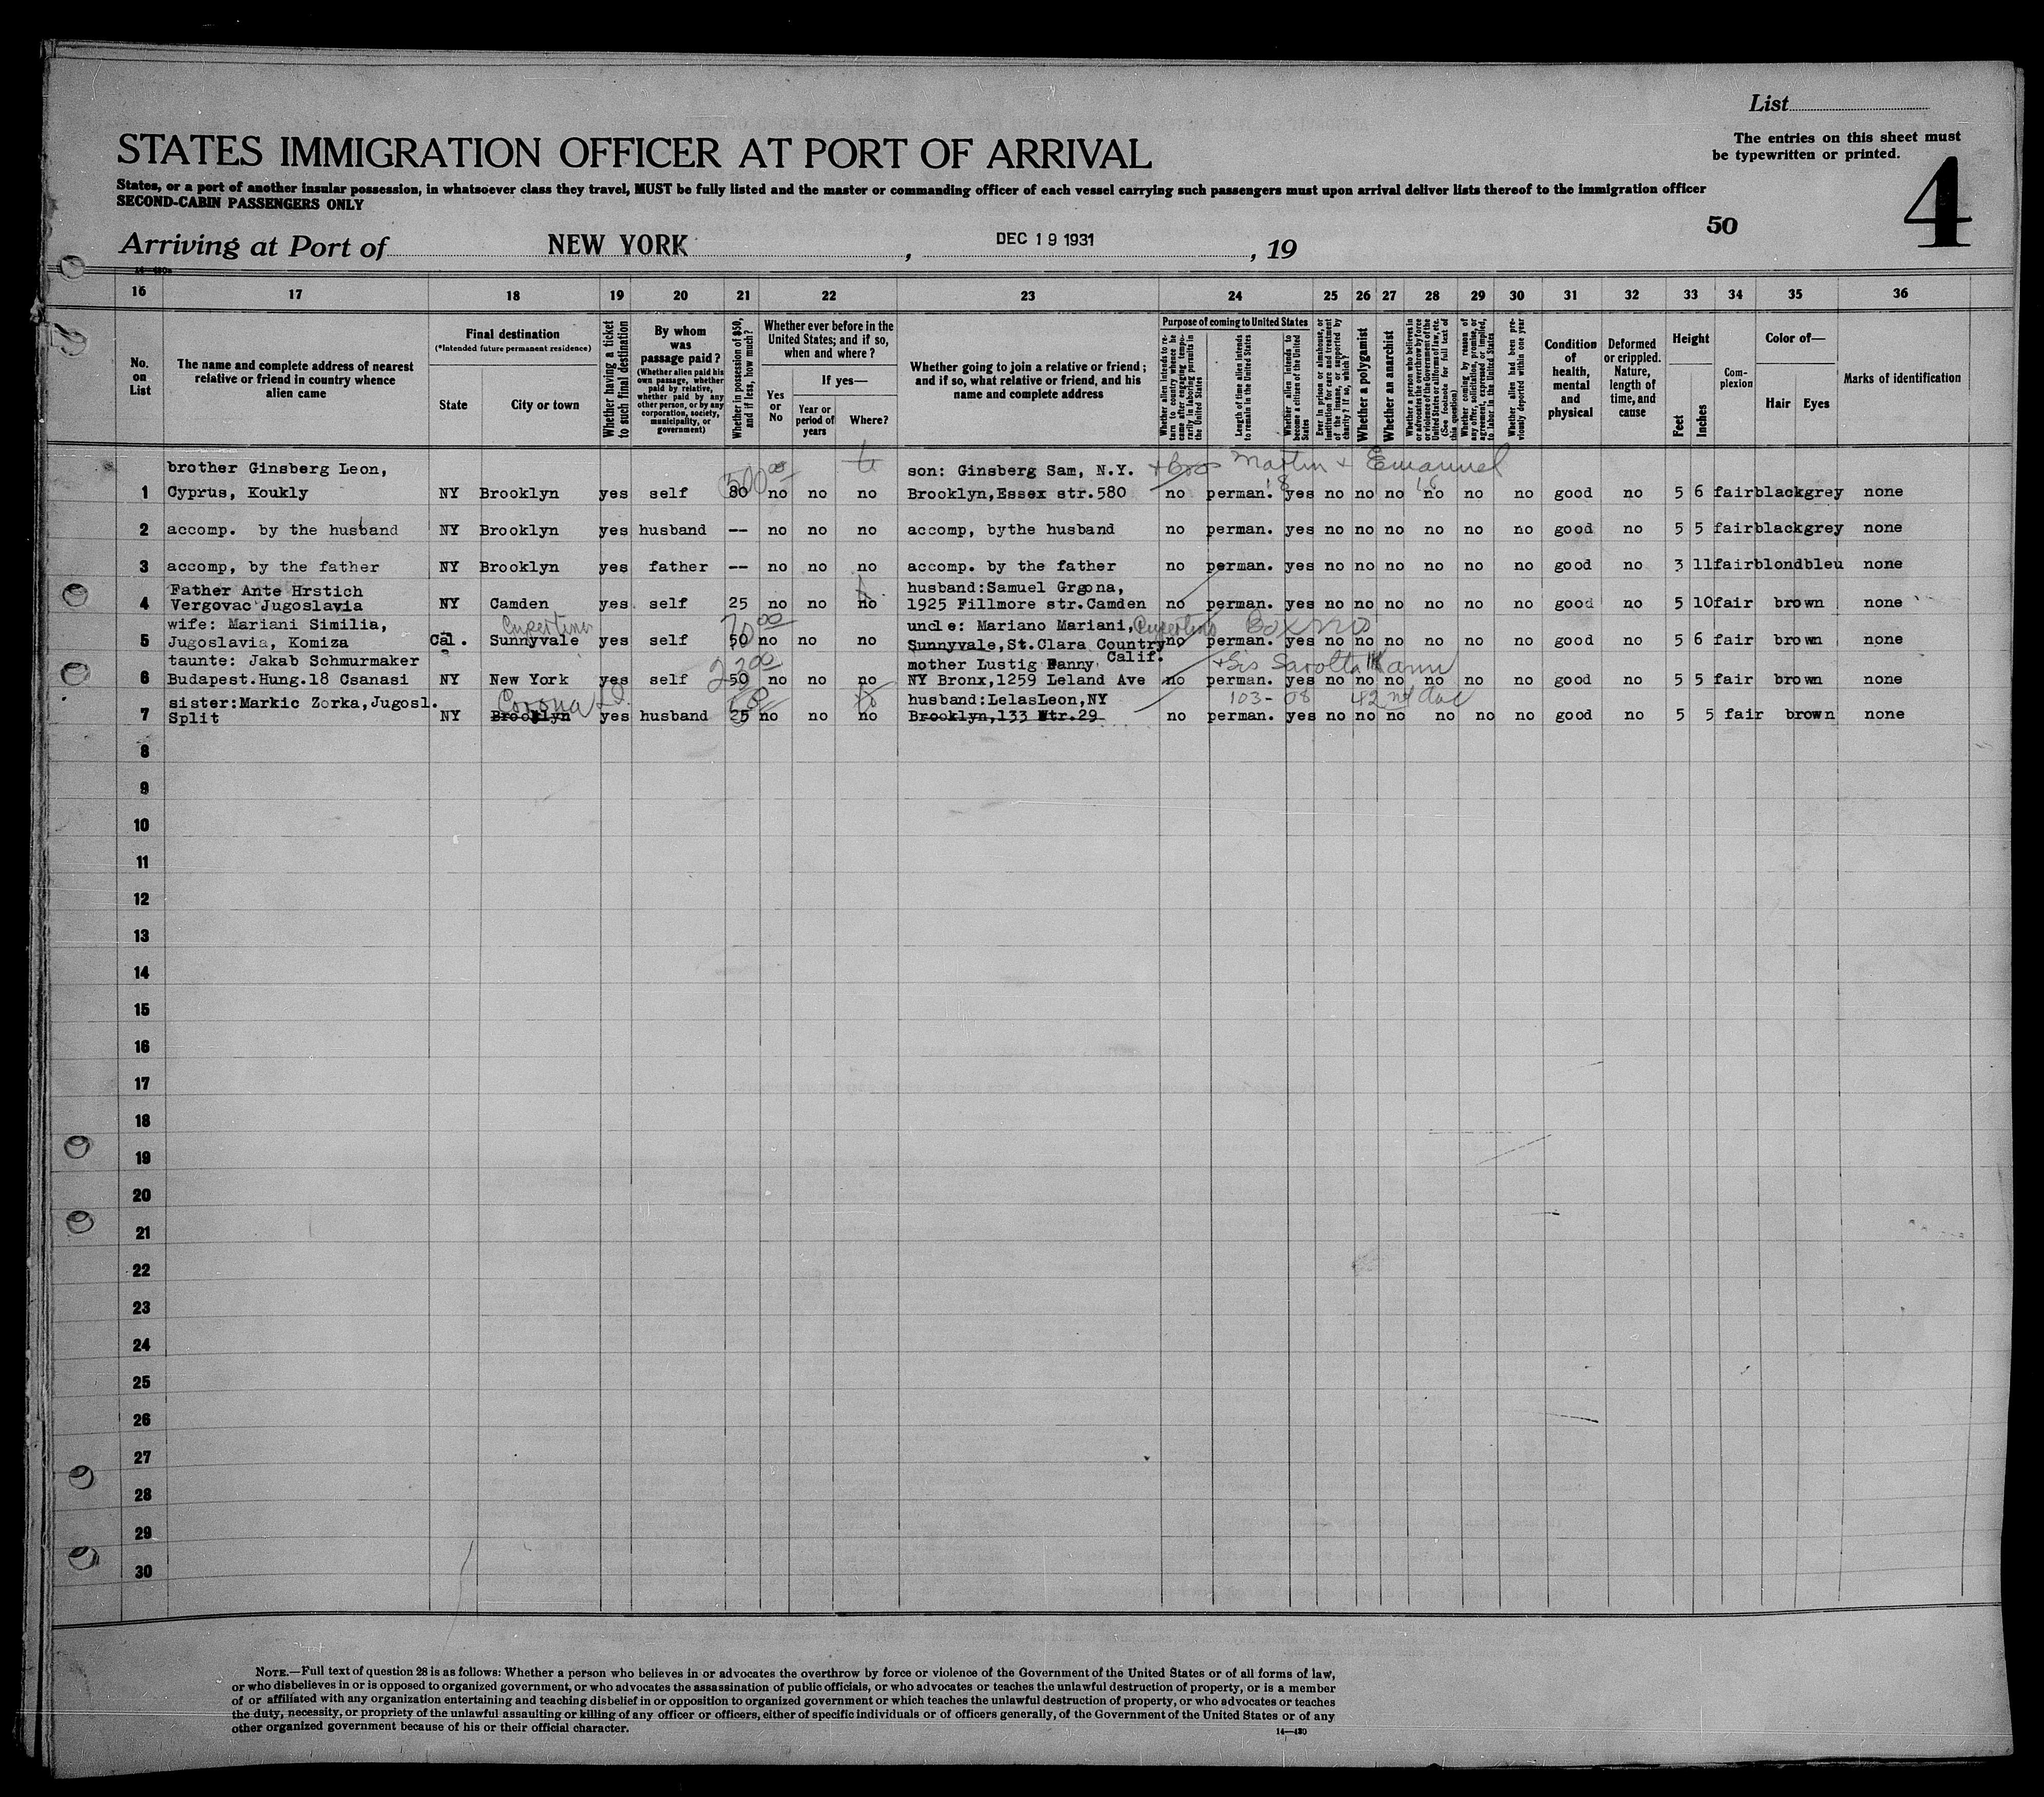 List
The entries on this sheet must
be typewritten or printed.
4
STATES IMMIGRATION OFFICER AT PORT OF ARRIVAL
States, or a port of another insular possession, in whatsoever class they travel, MUST be fully listed and the master or commanding officer of each vessel carrying such passengers must upon arrival deliver lists thereof to the immigration officer
SECOND-CABIN PASSENGERS ONLY
50
Arriving at Port of NEW YORK , DEC 19 1931 , 19
16 17 18 19 20 21 22 23 24 25 26 27 28 29 30 31 32 33 34 35 36
No. on List
The name and complete address of nearest relative or friend in country whence alien came
Final destination
(*Intended future permanent residence)
State
City or town
Whether having a ticket to such final destination
By whom was passage paid?
(Whether alien paid his own passage, whether paid by relative, whether paid by any other person, or by any corporation, society, municipality, or government)
Whether in possession of $50, and if less, how much?
Whether ever before in the United States; and if so, when and where?
Yes or No
If yes—
Year or period of years
Where?
Whether going to join a relative or friend; and if so, what relative or friend, and his name and complete address
Purpose of coming to United States
Whether alien intends to return to country whence he came after engaging temporarily in laboring pursuits in the United States
Length of time alien intends to remain in the United States
Whether alien intends to become a citizen of the United States
Ever in prison or almshouse, or institution for care and treatment of the insane, or supported by charity? If so, which?
Whether a polygamist
Whether an anarchist
Whether a person who believes in or advocates the overthrow by force or violence of the Government of the United States or all forms of law, etc. (See footnote for full text of this question)
Whether coming by reason of any offer, solicitation, promise, or agreement, expressed or implied, to labor in the United States
Whether alien had been previously deported within one year
Condition of health, mental and physical
Deformed or crippled. Nature, length of time, and cause
Height
Feet
Inches
Complexion
Color of—
Hair
Eyes
Marks of identification
brother Ginsberg Leon, 500 00 son: Ginsberg Sam, N.Y. + Bros Martin + Emanuel
1 Cyprus, Koukly NY Brooklyn yes self 80 no no no Brooklyn,Essex str.580 no perman. 18 yes no no no 16 no no no good no 5 6 fair black grey none
2 accomp. by the husband NY Brooklyn yes husband -- no no no accomp, bythe husband no perman. yes no no no no no no good no 5 5 fair black grey none
3 accomp, by the father NY Brooklyn yes father -- no no no accomp. by the father no perman. yes no no no no no no good no 3 11 fair blond bleu none
Father Ante Hrstich husband:Samuel Grgona,
4 Vergovac Jugoslavia NY Camden yes self 25 no no no 1925 Fillmore str.Camden no perman. yes no no no no no no good no 5 10 fair brown none
wife: Mariani Similia, Cupertino 70 00 uncle: Mariano Mariani, Cupertino Box
5 Jugoslavia, Komiza Cal. Sunnyvale yes self 50 no no no Sunnyvale,St.Clara Country no perman. yes no no no no no no good no 5 6 fair brown none
taunte: Jakab Schmurmaker mother Lustig Fanny Calif. + Sis Sarolta
6 Budapest.Hung.18 Csanasi NY New York yes self 50 no no no NY Bronx,1259 Leland Ave no perman. yes no no no no no no good no 5 5 fair brown none
sister:Markic Zorka,Jugosl. Corona L.I. husband:LelasLeon,NY 103-08 42nd ave
7 Split NY Brooklyn yes husband 25 no no no Brooklyn,133 Wtr.29 no perman. yes no no no no no no good no 5 5 fair brown none
8
9
10
11
12
13
14
15
16
17
18
19
20
21
22
23
24
25
26
27
28
29
30
NOTE.—Full text of question 28 is as follows: Whether a person who believes in or advocates the overthrow by force or violence of the Government of the United States or of all forms of law,
or who disbelieves in or is opposed to organized government, or who advocates the assassination of public officials, or who advocates or teaches the unlawful destruction of property, or is a member
of or affiliated with any organization entertaining and teaching disbelief in or opposition to organized government or which teaches the unlawful destruction of property, or who advocates or teaches
the duty, necessity, or propriety of the unlawful assaulting or killing of any officer or officers, either of specific individuals or of officers generally, of the Government of the United States or of any
other organized government because of his or their official character.
14—430